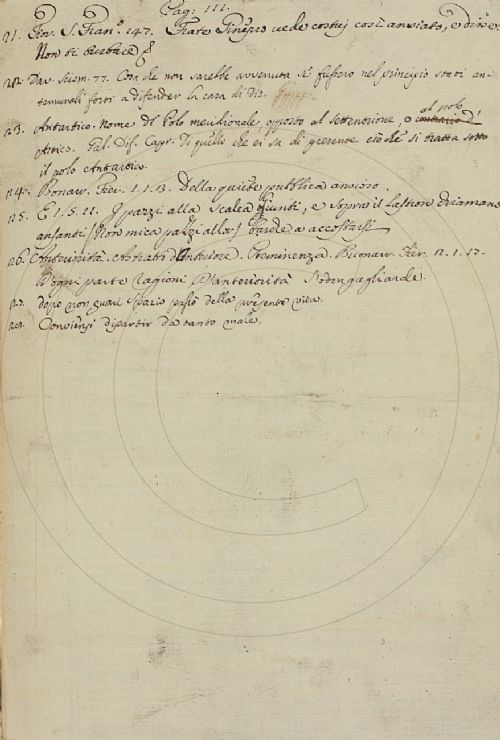 Pag. 111.
21. Fior. S. Fran.º 147. Frate Ginepro vede costui così ansiato, e dice:
Non ti turbare &
22. Dav. Scism. 77. Cosa che non sarebbe avvenuta se fussero nel principio stati an-
temurali forti a difender la casa di Dio.
23. Antartico. Nome di Polo meridionale, opposto al settentrione, o al polo
artico. Gal. Dif. Capr. Di quello che ei sa di presente ciò che si tratta sotto
il polo Antartico.
124. Bonarr. Fier. 1. 1. 13. Della quiete pubblica ansioso.
125. E 1. 5. 11. I pazzi alla Scalea giunti, e sopra il lastron
ansanti (Non mica pazzi allor) accostarsi
126. Anteriorità. Astratto d'Anteriore. Preminenza. Buonarr. Fier. 12. 1. 17.
D'ogni parte ragioni D'anteriorità
127. dopo non guari spazio passò della presente vita.
128. Conviensi dipartir da tanto male.